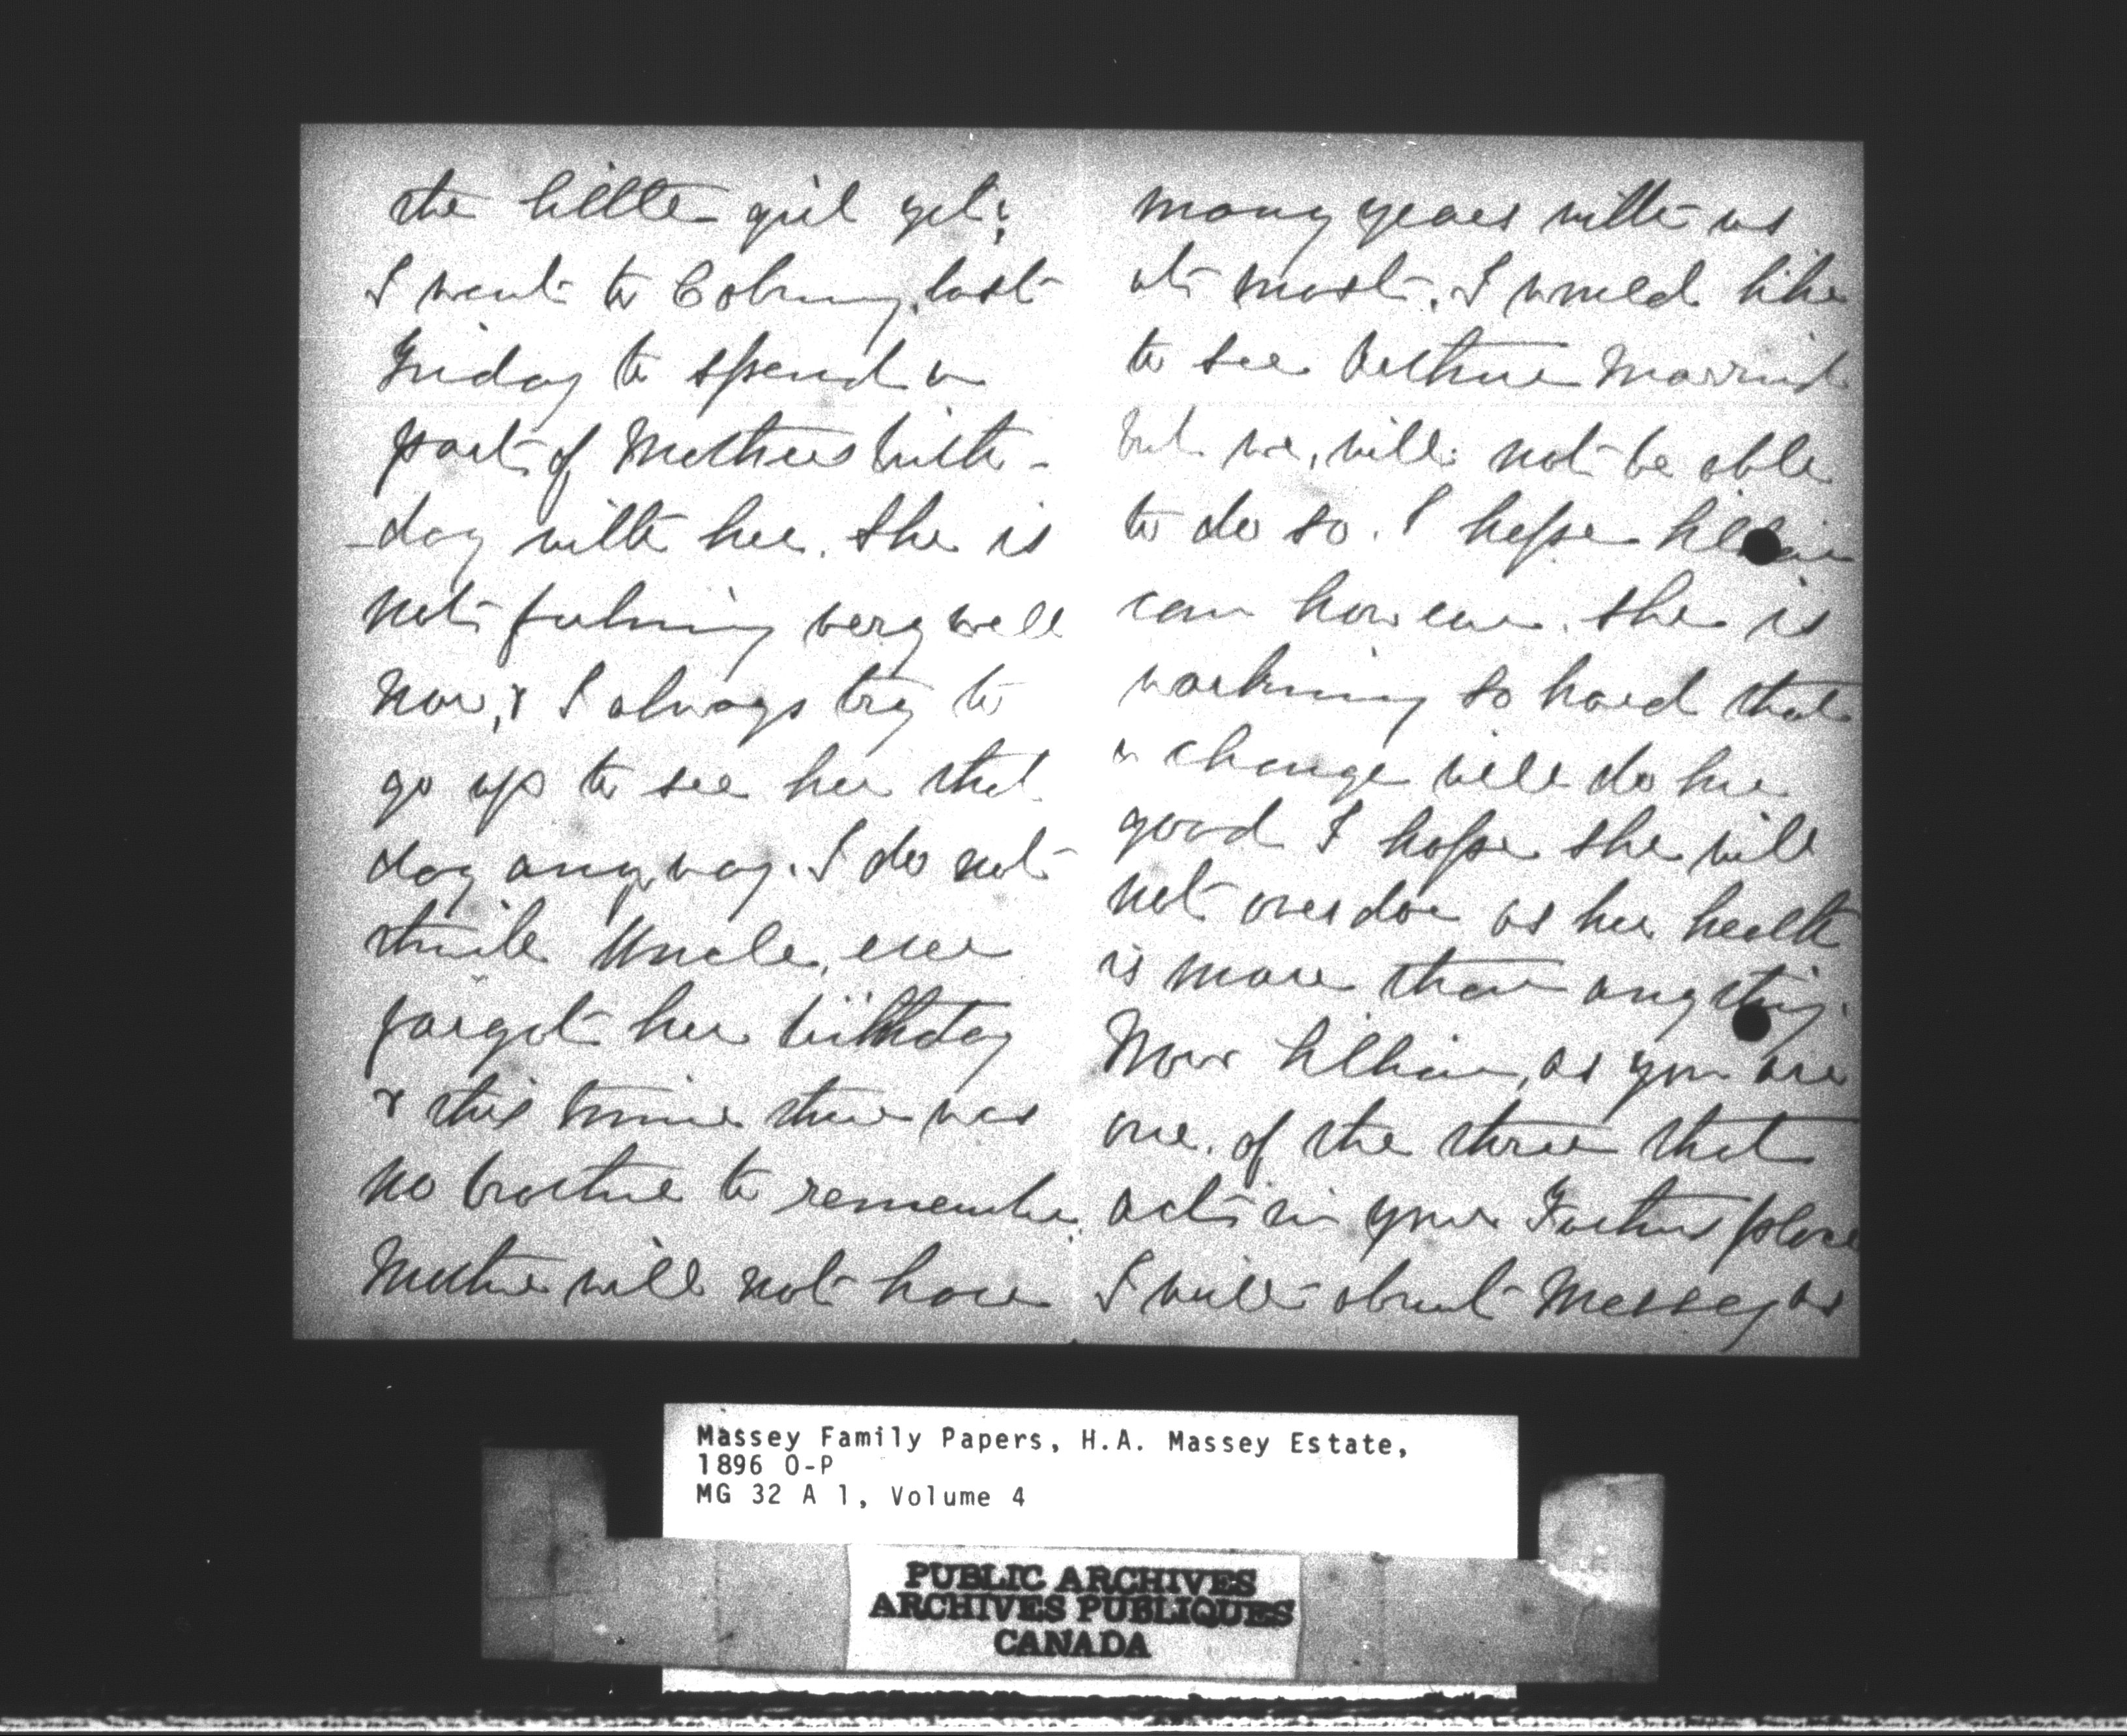 the little girl yet;
I went to Cobourg last
Friday to spend a
part of Mothers birth-
-day with her. She is
not feeling very well
now, & I always try to
go up to see her that
day anyway. I do not
think Uncle, ever
forgot her birthday
& this time there was
no brother to remember.
Mother will not have
many years with us
at most. I would like
to see Arthur Married
but we, will not be able
to do so. I hope Lillian
can however. She is
working so hard that
a change will do her
good I hope she will
not overdoe as her health
is more than anything.
Now Lillian, as you are
one, of the three that
acts in your Fathers place
I will about Massey as
Massey Family Papers, H.A. Massey Estate,
1896 O-P
MG 32 A 1, Volume 4
PUBLIC ARCHIVES
ARCHIVES PUBLIQUES
CANADA